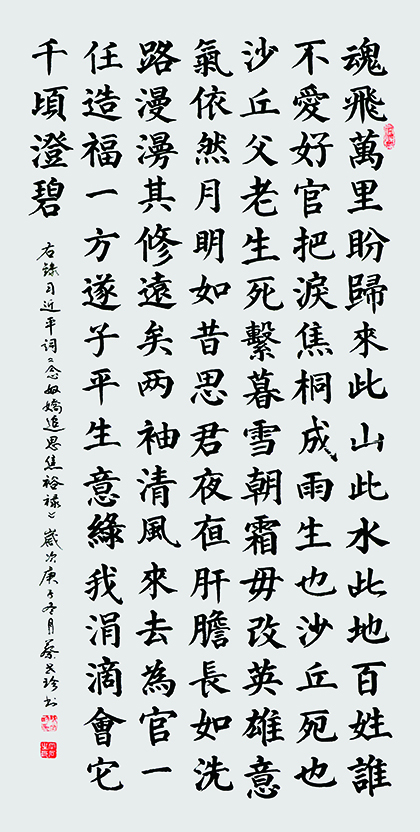 魂飛萬里盼歸來此山此水此地百姓誰
不愛好官把淚焦桐成雨生也沙丘死也
沙丘父老生死繫暮雪朝霜毋改英雄意
氣依然月明如昔思君夜夜肝膽長如洗
路漫漫其修遠矣两袖清風來去為官一
任造福一方遂子平生意綠我涓滴會它
千頃澄碧
右錄习近平词《念奴嬌追思焦裕祿》歲次庚子冬月蔡珍书